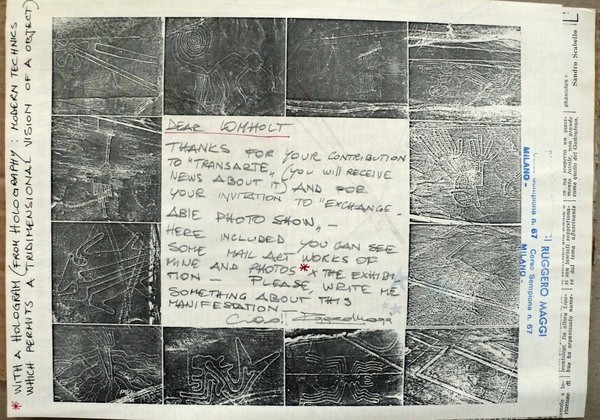 DEAR LOMHOLT
THANKS FOR YOUR CONTRIBUTION
TO "TRANSARTE" (YOU WILL RECEIVE
NEWS ABOUT IT) AND FOR
YOUR INVITATION TO "EXCHANGE-
ABLE PHOTO SHOW" -
HERE INCLUDED YOU CAN SEE
SOME MAIL ART WORKS OF
MINE AND PHOTOS * X THE EXHIBI
TION - PLEASE WRITE ME
SOMETHING ABOUT THIS
MANIFESTATION -
Ciao! Ruggero Maggi
* WITH A HOLOGRAM (FROM HOLOGRAPHY: MODERN TECHNICS
WHICH PERMITS A TRIDIMENSIONAL VISION OF A OBJECT)
RUGGERO MAGGI
Corso Sempione n. 67
MILANO -
Sempione n. 67
MILANO -
Sandro Scabello